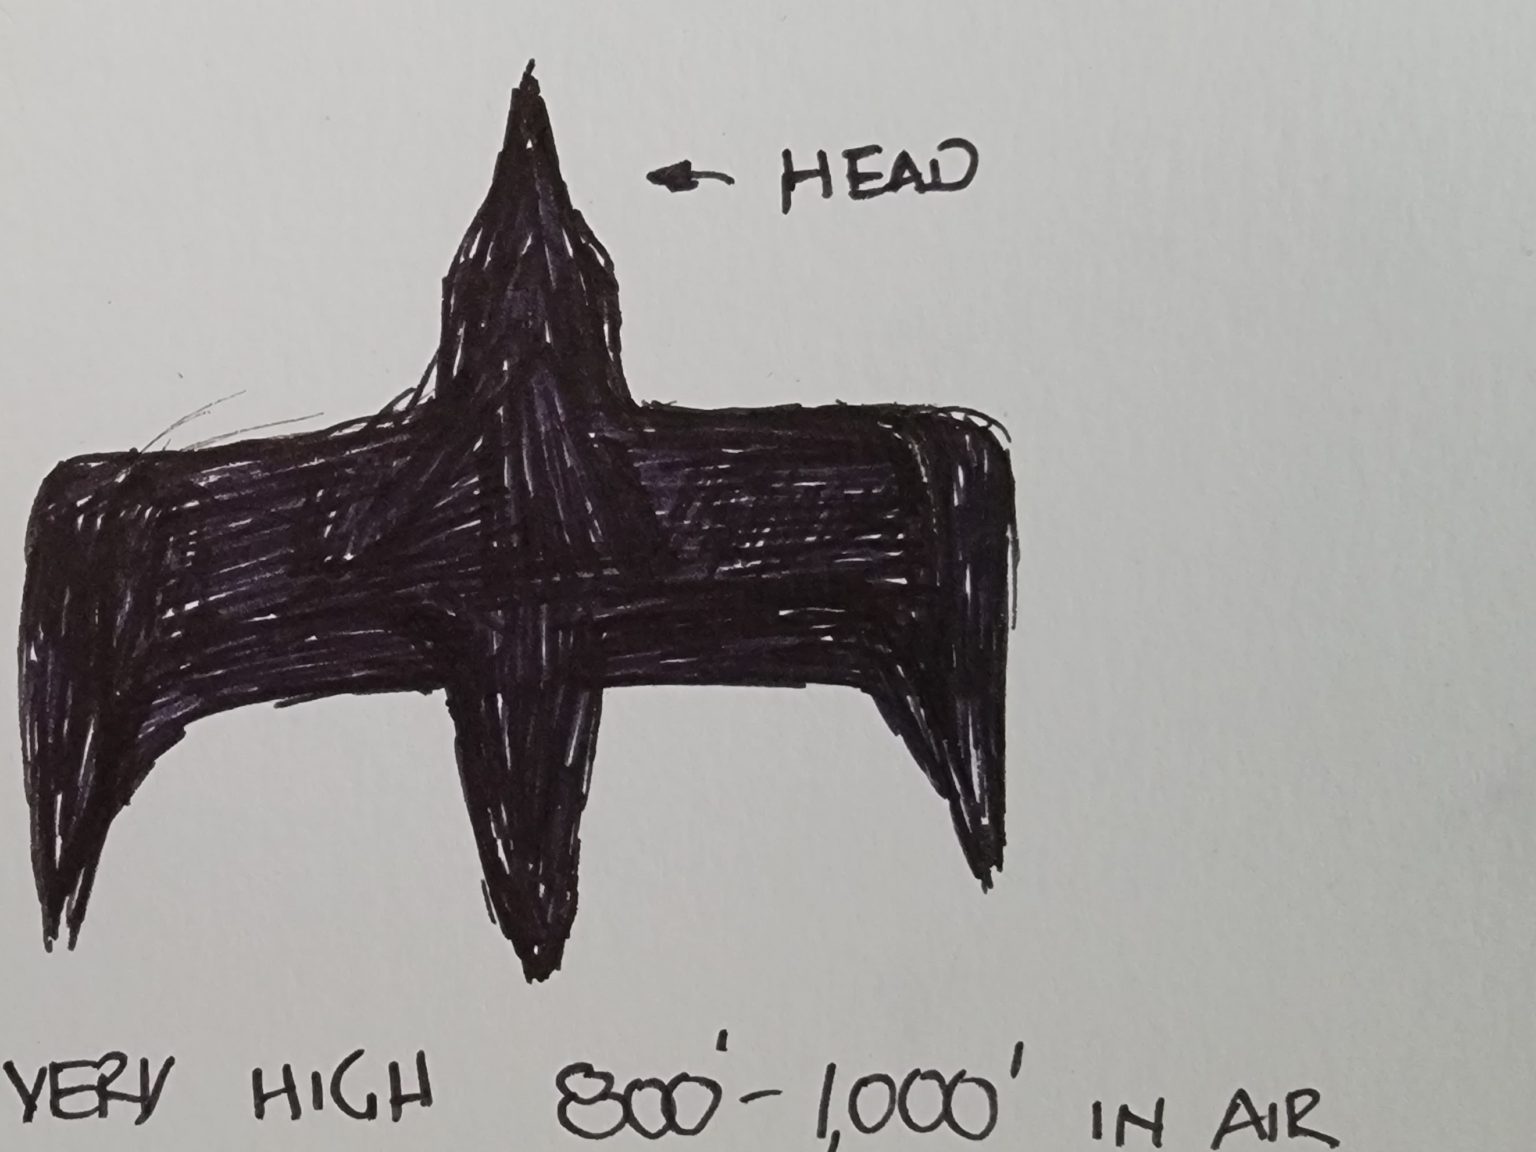 HEAD
VERY HIGH 800'-1,000' IN AIR